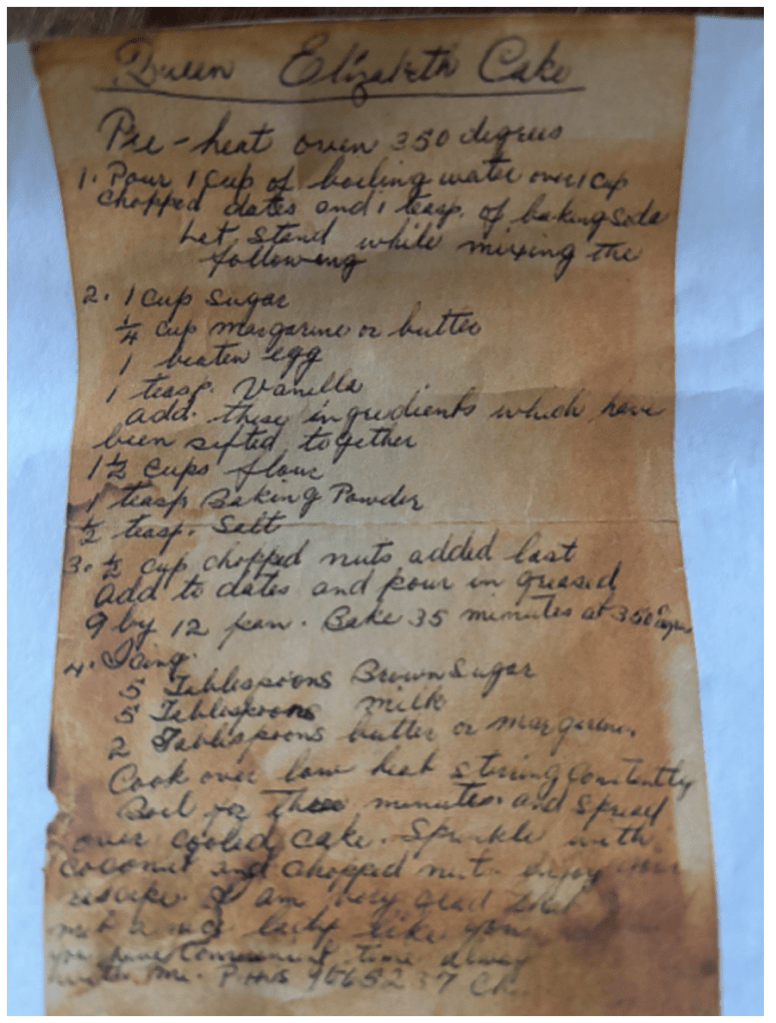 Queen Elizabeth Cake
Pre-heat oven 350 degrees
1. Pour 1 cup of boiling water over 1 cup
chopped dates and 1 teasp. of baking soda
Let stand while mixing the
following
2. 1 cup sugar
1/4 cup margarine or butter
1 beaten egg
1 teasp. Vanilla
add. these ingredients which have
been sifted together
1 1/2 cups flour
1 teasp Baking Powder
1/2 teasp. Salt
3. 1/2 cup chopped nuts added last
add to dates and pour in greased
9 by 12 pan. Bake 35 minutes at 350 degrees
4. Icing.
5 Tablespoons Brown Sugar
5 Tablespoons milk
2 Tablespoons butter or margarine.
Cook over low heat stirring constantly
Boil for three minutes and spread
over cooled cake. Sprinkle with
coconut and chopped nuts enjoy
I am very glad
met a nice lady like you
you have time
me.